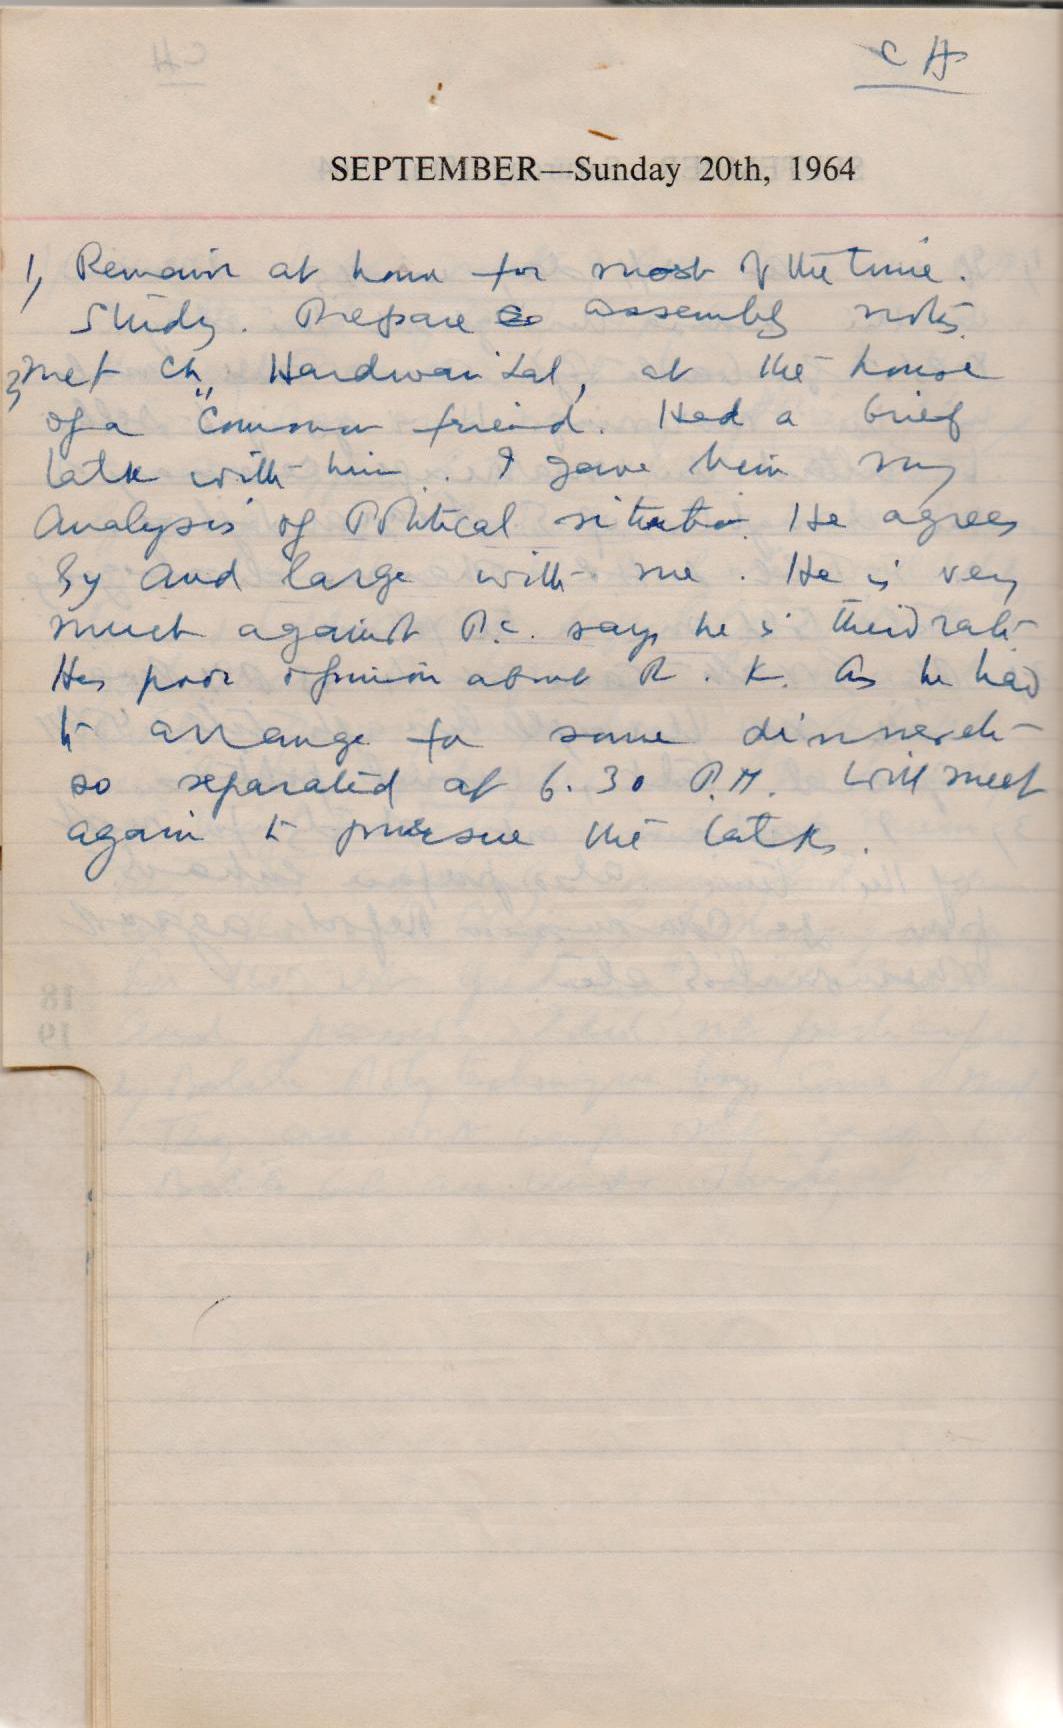 CH
SEPTEMBER—Sunday 20th, 1964
1, Remain at home for most of the time.
Study. Prepare assembly notes.
2, met Ch. Hardwari Lal, at the house
of a "Common friend. Had a brief
talk with him. I gave him my
Analysis of Political situation. He agrees
by and large with me. He is very
much against P.C. says he is third rate
Has poor opinion about R. K. As he had
to arrange for some dinner etc
so separated at 6.30 P.M. Will meet
again to pursue the talks.